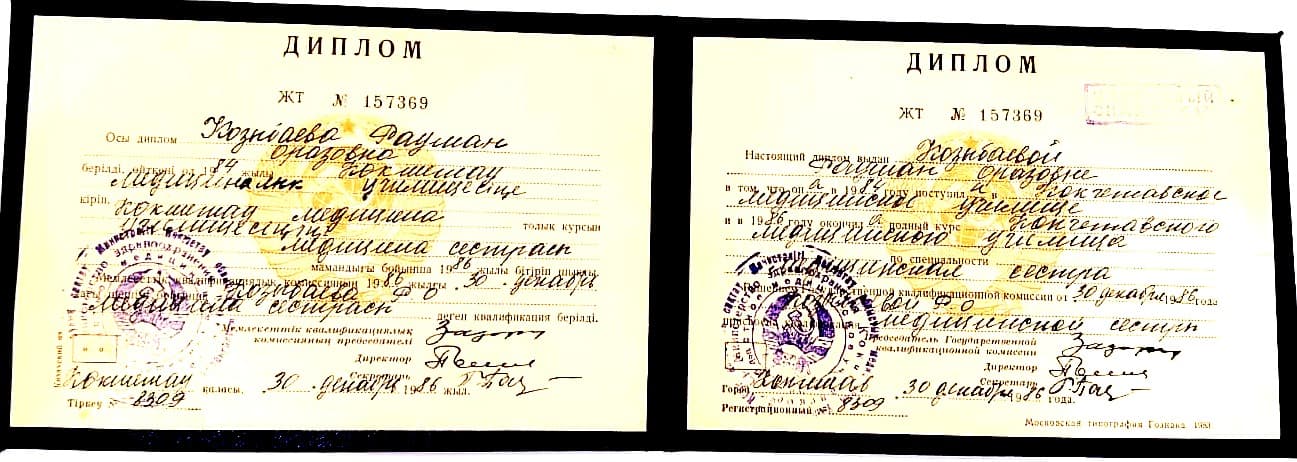 ДИПЛОМ
ЖТ № 157369
Осы диплом Козыбаева Раушан
Оразовна
берілді, өйткені ол 1984 жылы Кокшетау
медициналык училищесіне
кіріп, Кокшетау медицина
училищесінің толық курсын
медицина сестрасы
мамандығы бойынша 1986 жылы бітіріп шықты.
Мемлекеттік квалификациялық комиссияның 1986 жылғы 30 декабрь
Р О
медицина сестрасы деген квалификация берілді.
Мемлекеттік квалификациялық
комиссияның председателі
Директор
Секретарь
Кокшетау қаласы. 30 декабрь 1986 жыл.
Тіркеу № 8309
ДИПЛОМ
ЖТ № 157369
Настоящий диплом выдан Козыбаевой
Раушан Оразовне
в том, что он а в 1984 году поступил а в Кокчетавское
медицинское училище
и в 1986 году окончил а полный курс Кокчетавского
медицинского училища
по специальности
медицинская сестра
Решением Государственной квалификационной комиссии от 30 декабря 1986 года
Козыбаевой Р О
присвоена квалификация медицинской сестры
Председатель Государственной
квалификационной комиссии
Директор
Секретарь
Город Кокшетав 30 декабря 1986 года.
Регистрационный № 8309
Московская типография Гознака. 1983